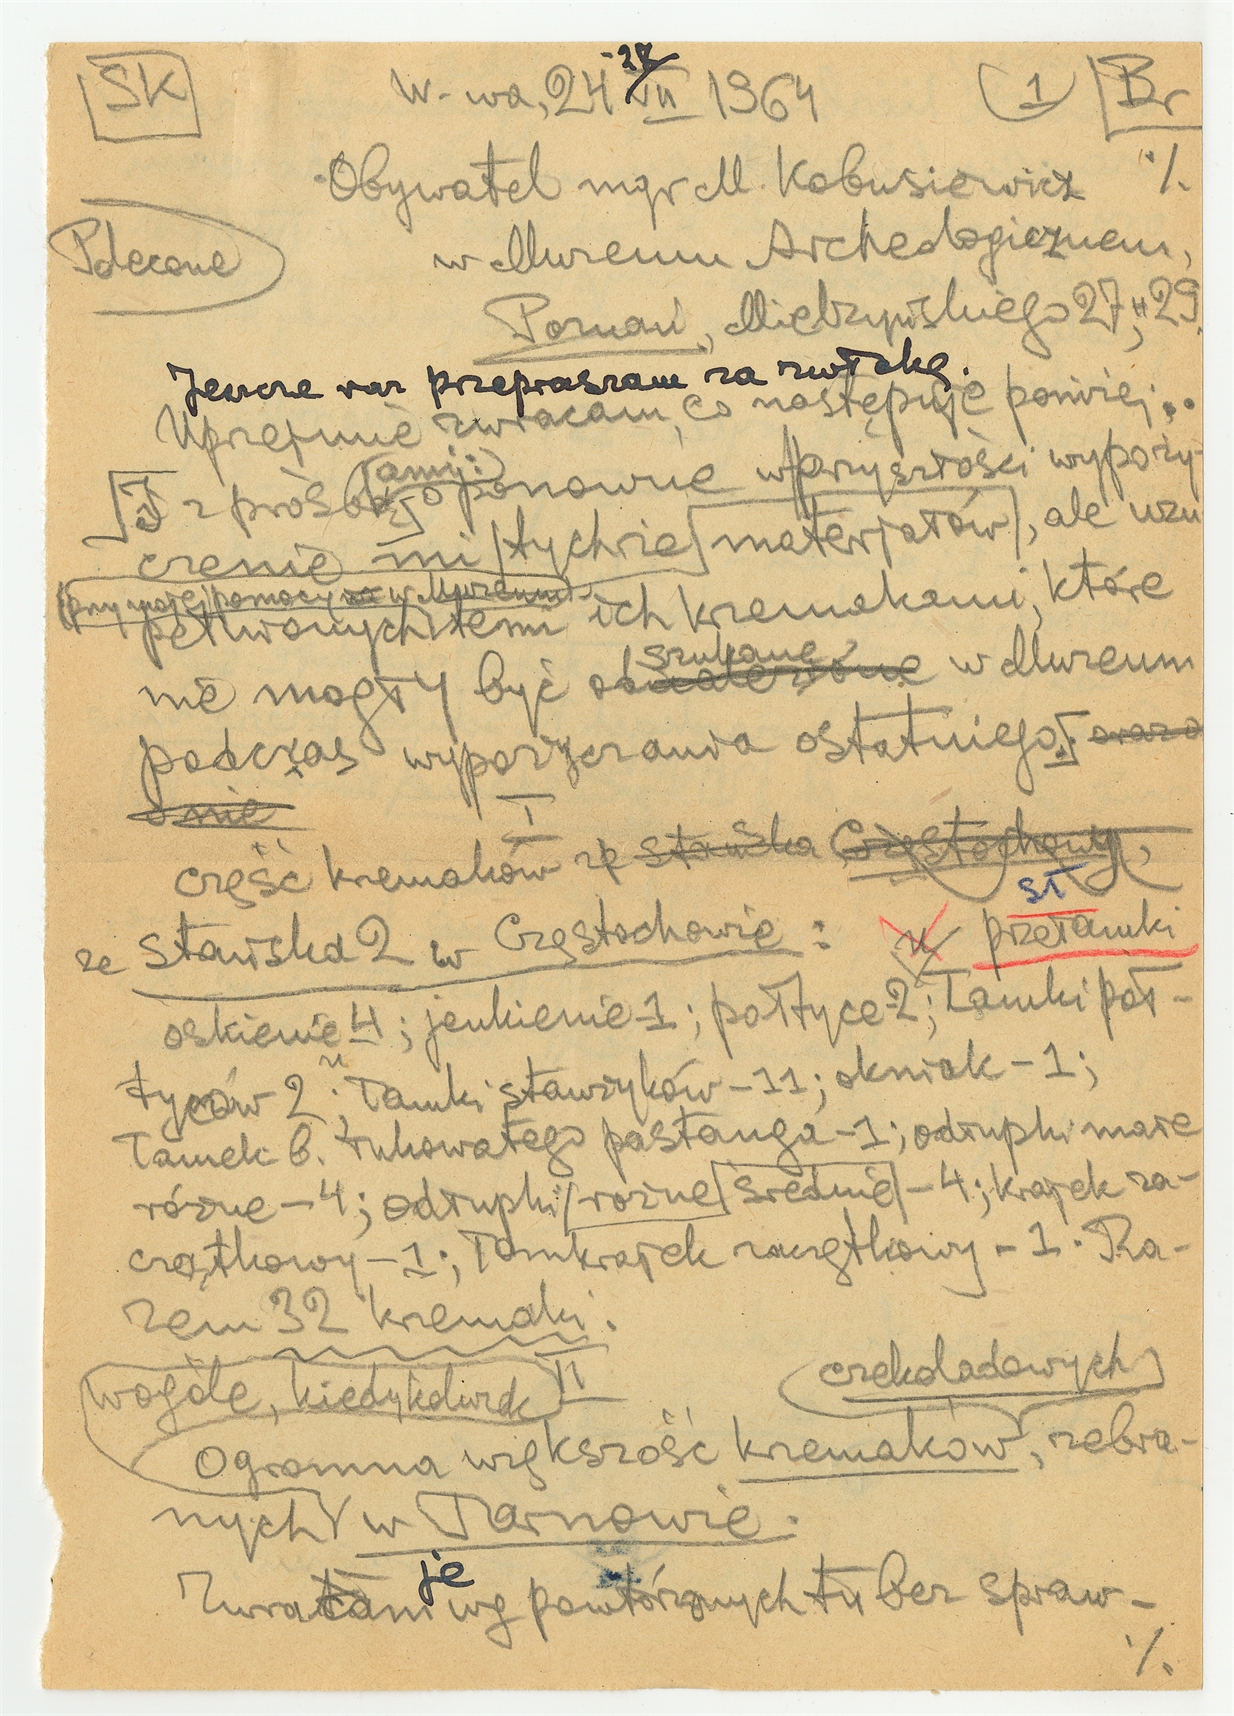 ŚK
W-wa, 24-27 VII 1964
1
Br
Obywatel mgr M. Kobusiewicz
./.
w Muzeum Archeologicznem,
Polecone
Poznań, Mielżyńskiego 27 29.
Jeszcze raz przepraszam za zwłokę.
Uprzejmie zwracam, co następuje poniżej:
z prośbą o ponownie w przyszłości wypoży-
czenie mi tychże materjałów, ale uzu
przy mojej pomocy w Muzeum
pełnionych temi ich krzemakami, które
szukane
nie mogły być w Muzeum
podczas wypożyczania ostatniego. oraz o
nie
I
część krzemaków ze Stawiska Częstochowy,
sł
ze Stawiska 2 w Częstochowie: przełamki
oskienie 4; jenkienie-1; połtyce-2; łamki pół-
tyców 2; łamki stawzyków-11; okniak-1;
łamek b. łukowatego pastanga-1; odłupki małe
różne-4; odłupki różne średnie-4; krajek za-
czątkowy-1; łamkrajek zaczątkowy-1. Ra-
zem 32 krzemaki.
wogóle, kiedykolwiek
II
czekoladowych
Ogromna większość krzemaków, zebra-
nych w Tarnowie.
je
Zwracam wg powtórzonych tu bez spraw-
./.